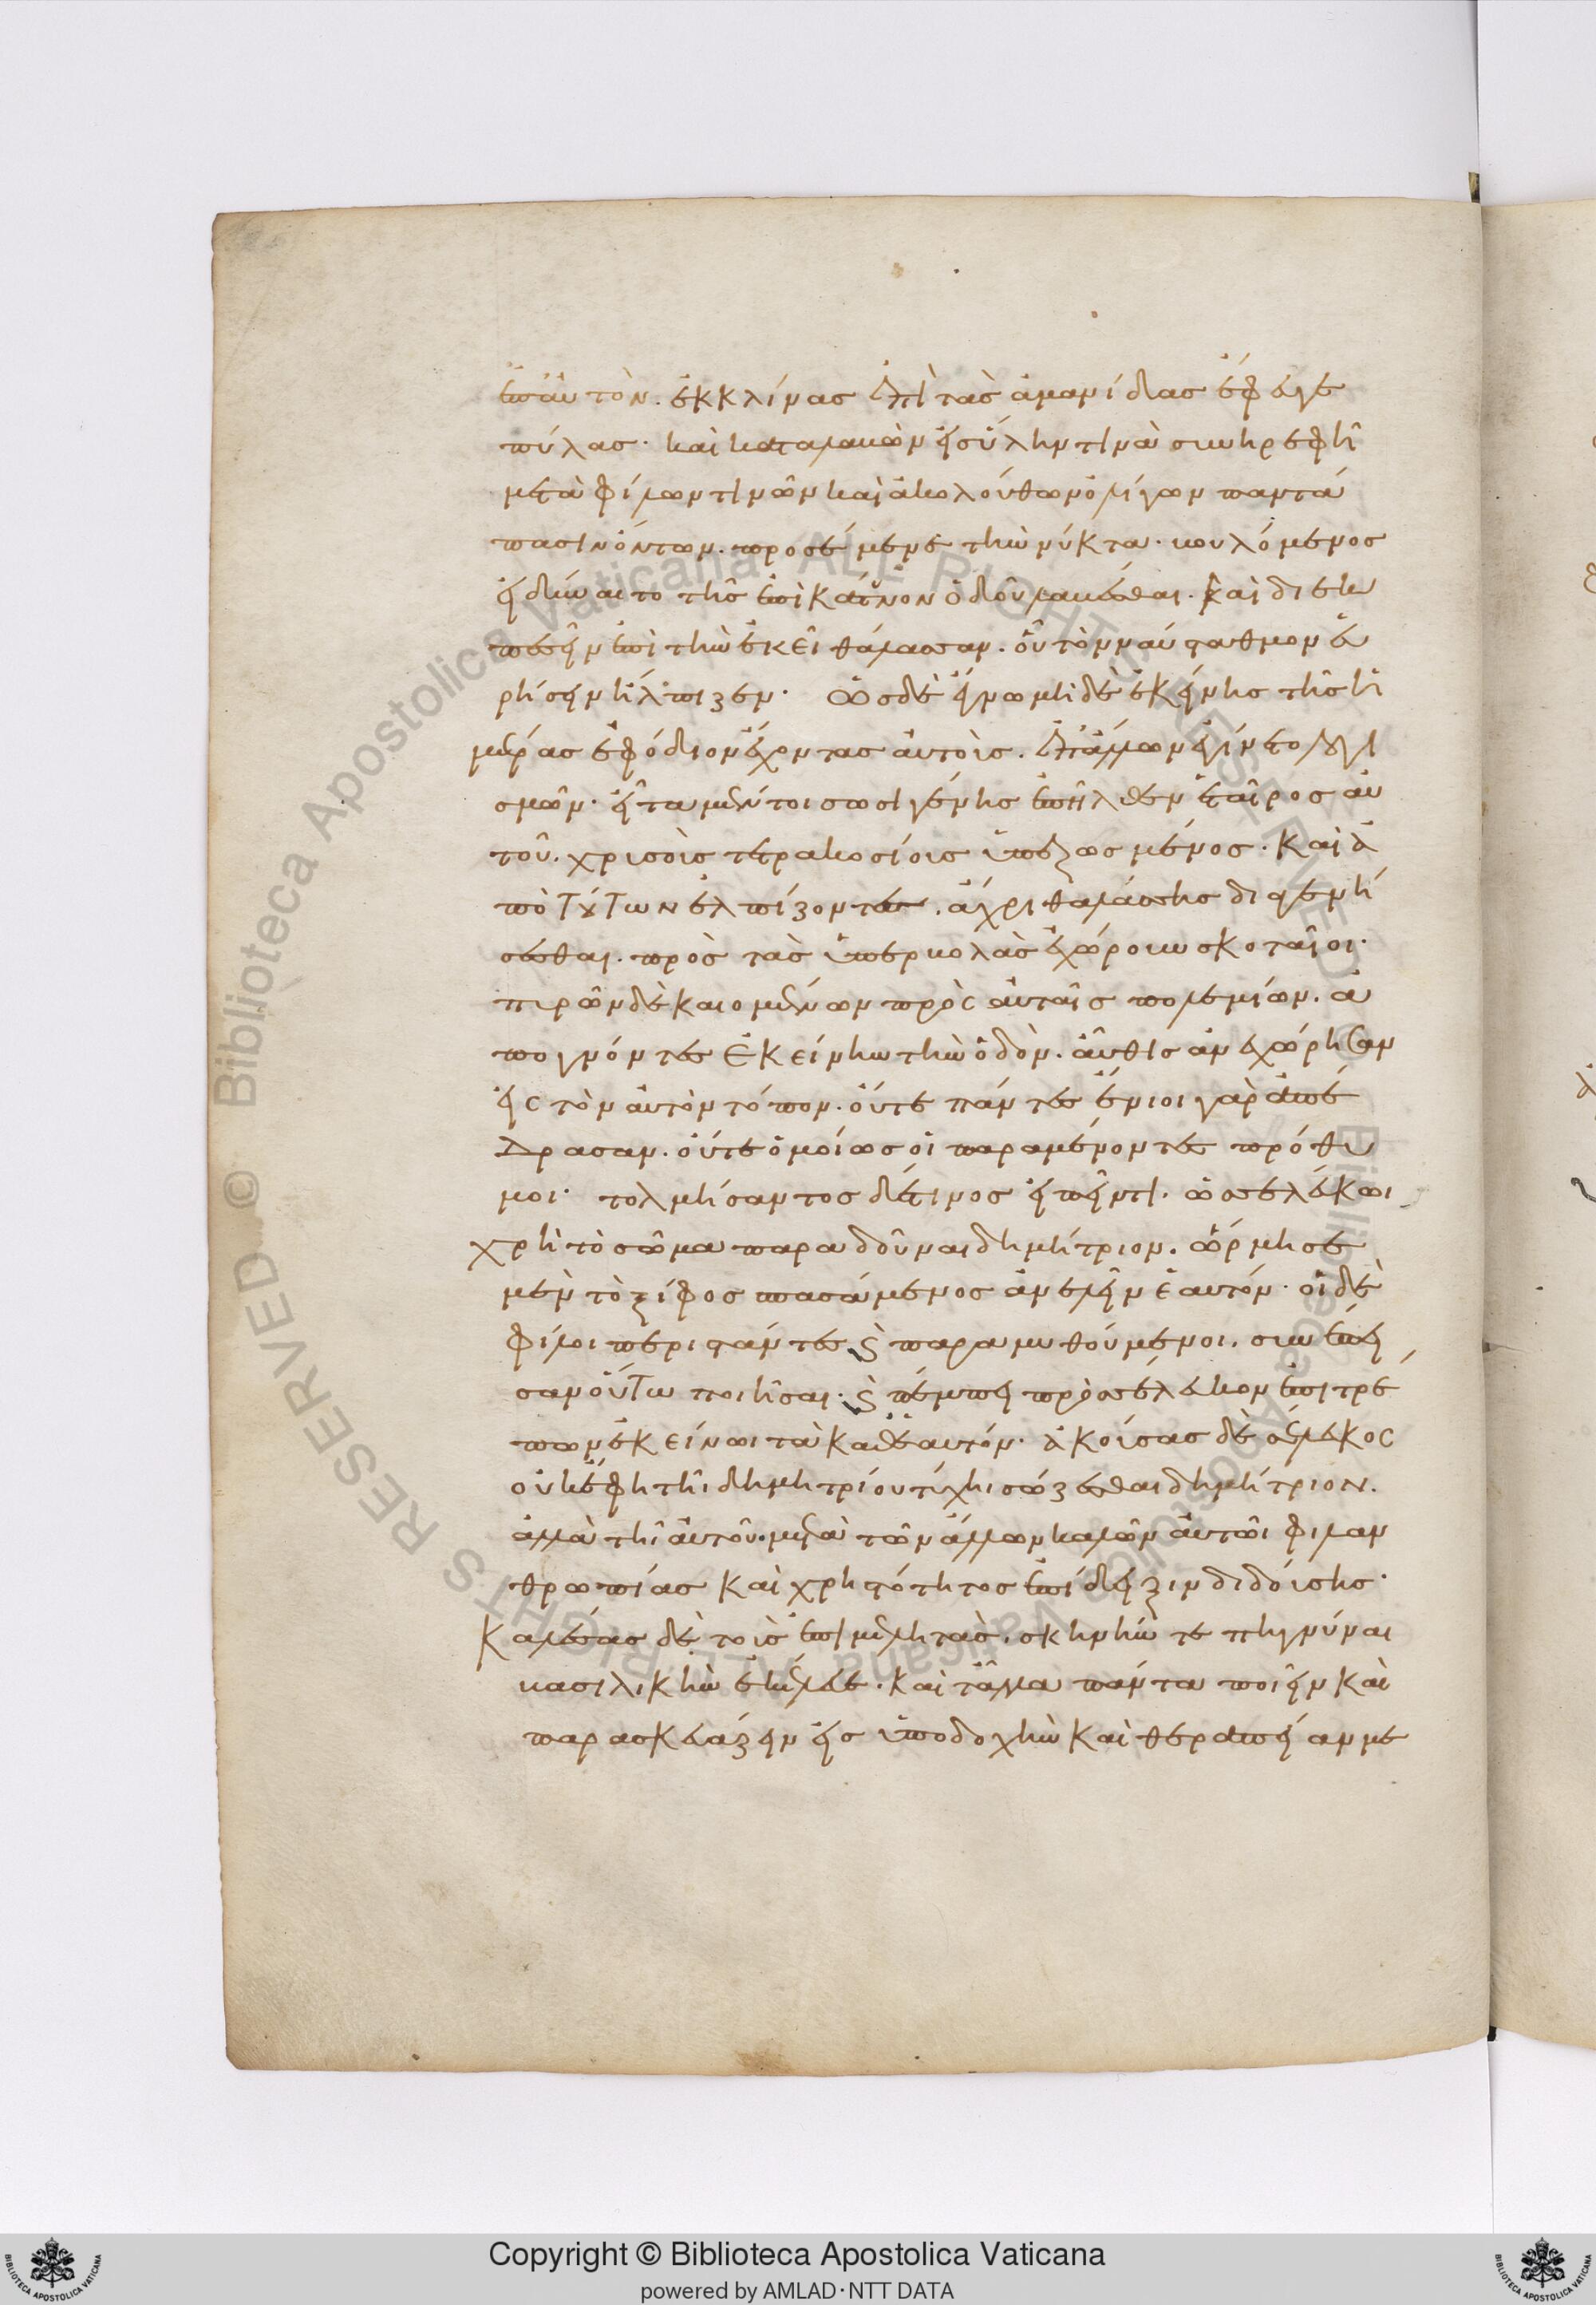 ἐπ' αὐτὸν. ἐκκλίνας ἐπὶ τὰς ἀμανίδας ἔφευγε
πύλας· καὶ καταλαβὼν εἰς ὕλην τινὰ συνηρεφῆ
μετὰ φίλων τινῶν καὶ ἀκολούθων ὀλίγων παντά
πασιν ὄντων. προσέμενε τὴν νύκτα. βουλόμενος
εἰ δύναιτο τῆς ἐπὶ καῦνον ὁδοῦ λαβέσθαι. καὶ διεκ
πεσεῖν ἐπὶ τὴν ἐκεῖ θάλασσαν. οὗ τὸν ναύσταθμον εὑ
ρήσειν ἤλπιζεν. ὡς δὲ ἔγνω μηδὲ ἐκείνης τῆς ἡ
μέρας ἐφόδιον ἔχοντας αὐτοὺς. ἐπ' ἄλλων ἐγίνετο λογι
σμῶν. εἶτα μέντοι σωσιγένης ἐπῆλθεν ἑταῖρος αὐ
τοῦ. χρυσοὺς τετρακοσίους ὑπεζωσμένος. καὶ ἀ
πὸ τούτων ἐλπίζοντες. ἄχρι θαλάσσης διαγενή
σεσθαι. πρὸς τὰς ὑπερβολὰς ἐχώρουν σκοταῖοι·
πυρῶν δὲ καιομένων πρὸς αὐταῖς πολεμίων. ἀ
πογνόντες ἐκείνην τὴν ὁδὸν. αὖθις ἀνεχώρησαν
εἰς τὸν αὐτὸν τόπον. οὔτε πάντες ἔνιοι γὰρ ἀπέ
δρασαν. οὔτε ὁμοίως οἱ παραμένοντες πρόθυ
μοι· τολμήσαντος δέ τινος εἰπεῖν τι. ὡς σελεύκωι
χρὴ τὸ σῶμα παραδοῦναι δημήτριον. ὥρμησε
μὲν τὸ ξίφος σπασάμενος ἀνελεῖν ἑαυτόν· οἱ δὲ
φίλοι περιστάντες καὶ παραμυθούμενοι. συνέπει
σαν οὕτω ποιῆσαι· καὶ πέμπει πρὸς σέλευκον ἐπιτρέ
πων ἐκείνωι τὰ καθ' ἑαυτόν. ἀκούσας δὲ σέλευκος
οὐκ ἔφη τῆι δημητρίου τύχηι σώζεσθαι δημήτριον.
ἀλλὰ τῆι αὐτοῦ. μετὰ τῶν ἄλλων καλῶν αὐτῶι φιλαν
θρωπίας καὶ χρηστότητος ἐπίδειξιν διδούσης·
Καλέσας δὲ τοὺς ἐπιμελητὰς. σκηνήν τε πηγνύναι
βασιλικὴν ἐκέλευε. καὶ τἆλλα πάντα ποιεῖν καὶ
παρασκευάζειν εἰς ὑποδοχὴν καὶ θεραπείαν με